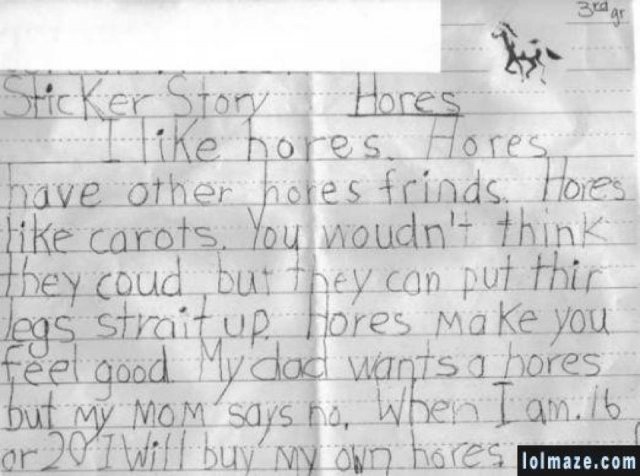 3rd gr
Sticker Story Hores
I like hores. Hores
have other hores frinds. Hores
like carots. You woudn't think
they coud but they can put thir
legs strait up. Hores make you
feel good. My dad wants a hores
but my mom says no. When I am 16
or 20 I will buy my own hores.
lolmaze.com